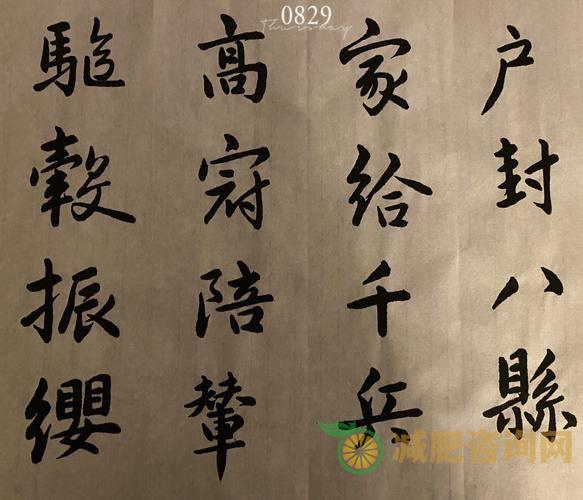 0829
Thursday
户封八縣
家给千兵
高冠陪輦
驅轂振纓
减肥咨询网